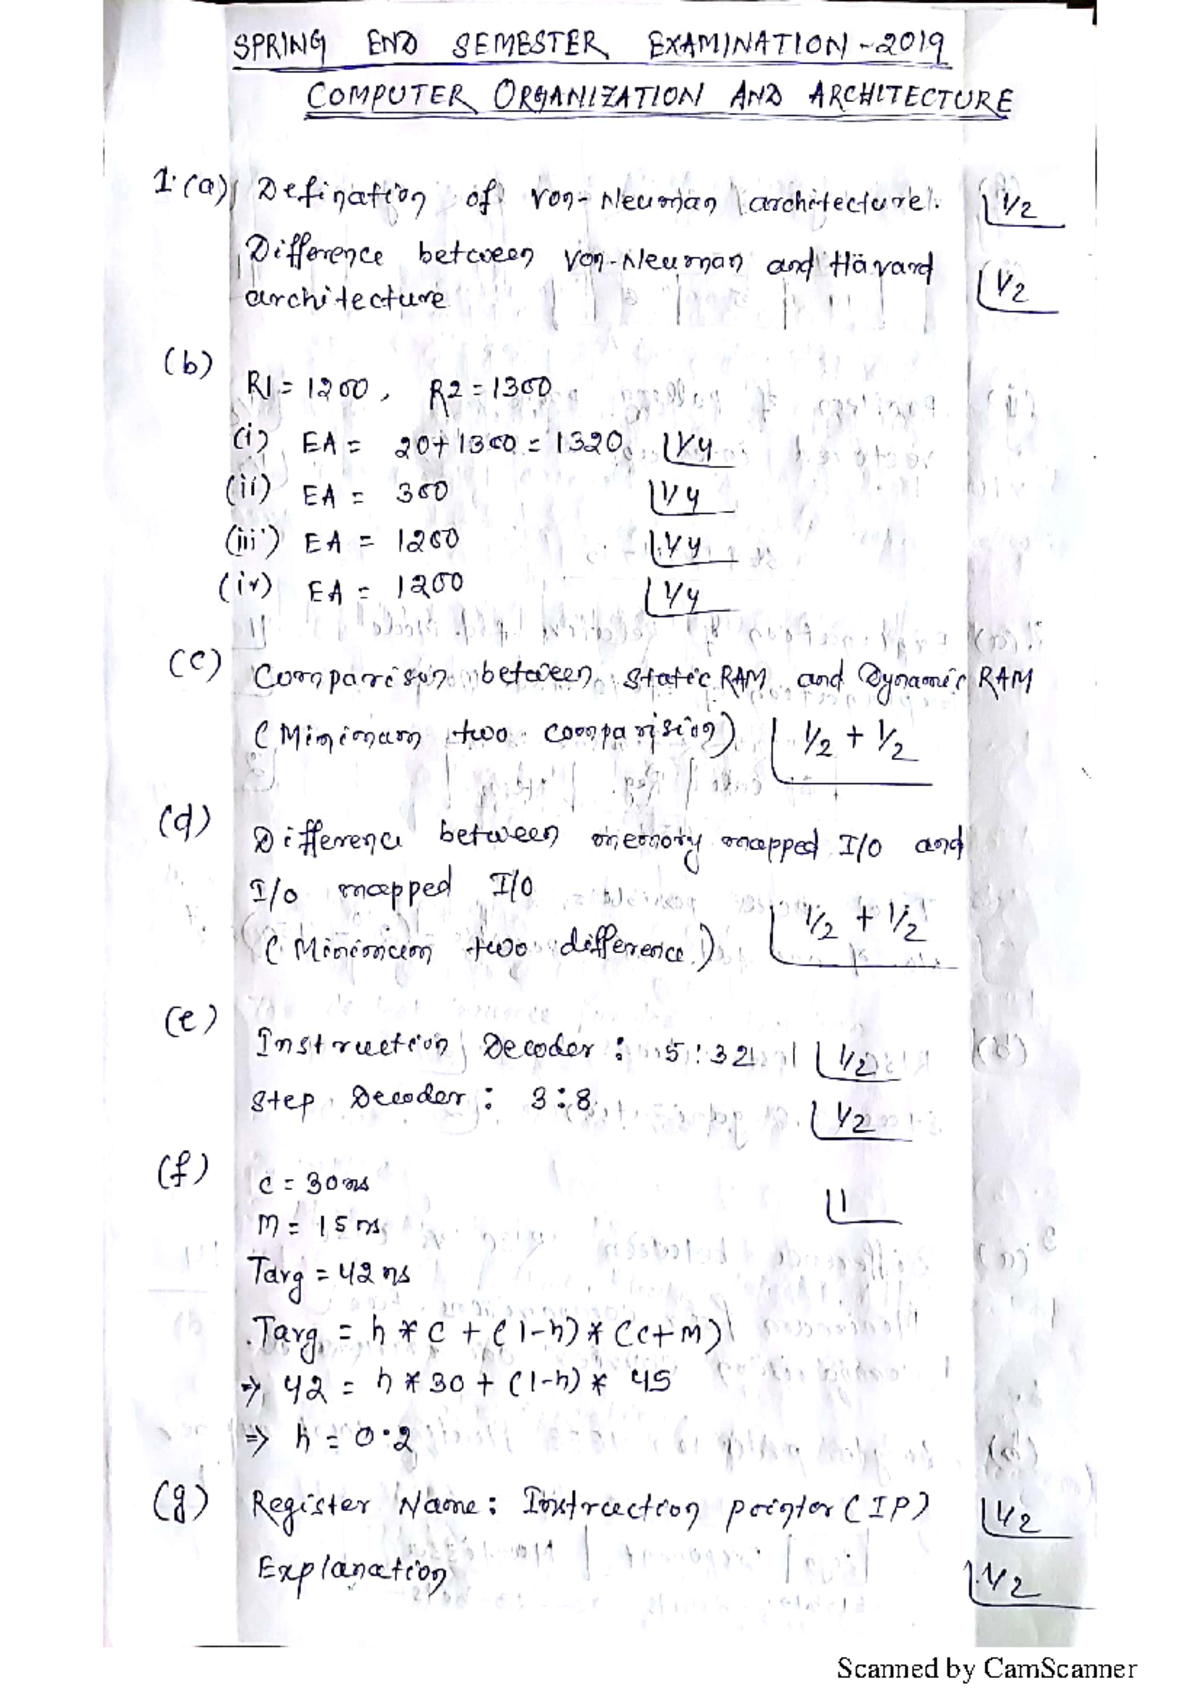 SPRING END SEMESTER EXAMINATION-2019
COMPUTER ORGANIZATION AND ARCHITECTURE
1.(a) Defination of von-Neuman architecture. 1/2
Difference between von-Neuman and Havard 1/2
architecture
(b) R1 = 1200, R2 = 1300
(i) EA = 20+1300 = 1320 1/4
(ii) EA = 300 1/4
(iii) EA = 1200 1/4
(iv) EA = 1200 1/4
(c) Comparison between static RAM and Dynamic RAM
(Minimum two comparision) 1/2 + 1/2
(d) Difference between memory mapped I/O and
I/o mapped I/O
(Minimum two difference) 1/2 + 1/2
(e) Instruction Decoder : 5:32 1/2
Step Decoder : 3:8 1/2
(f) c = 30ns 1
m = 15 ns
Tavg = 42 ns
Tavg = h * c + (1-h) * (c+m)
⇒ 42 = h * 30 + (1-h) * 45
⇒ h = 0.2
(g) Register Name: Instruction pointer (IP) 1/2
Explanation 1/2
Scanned by CamScanner